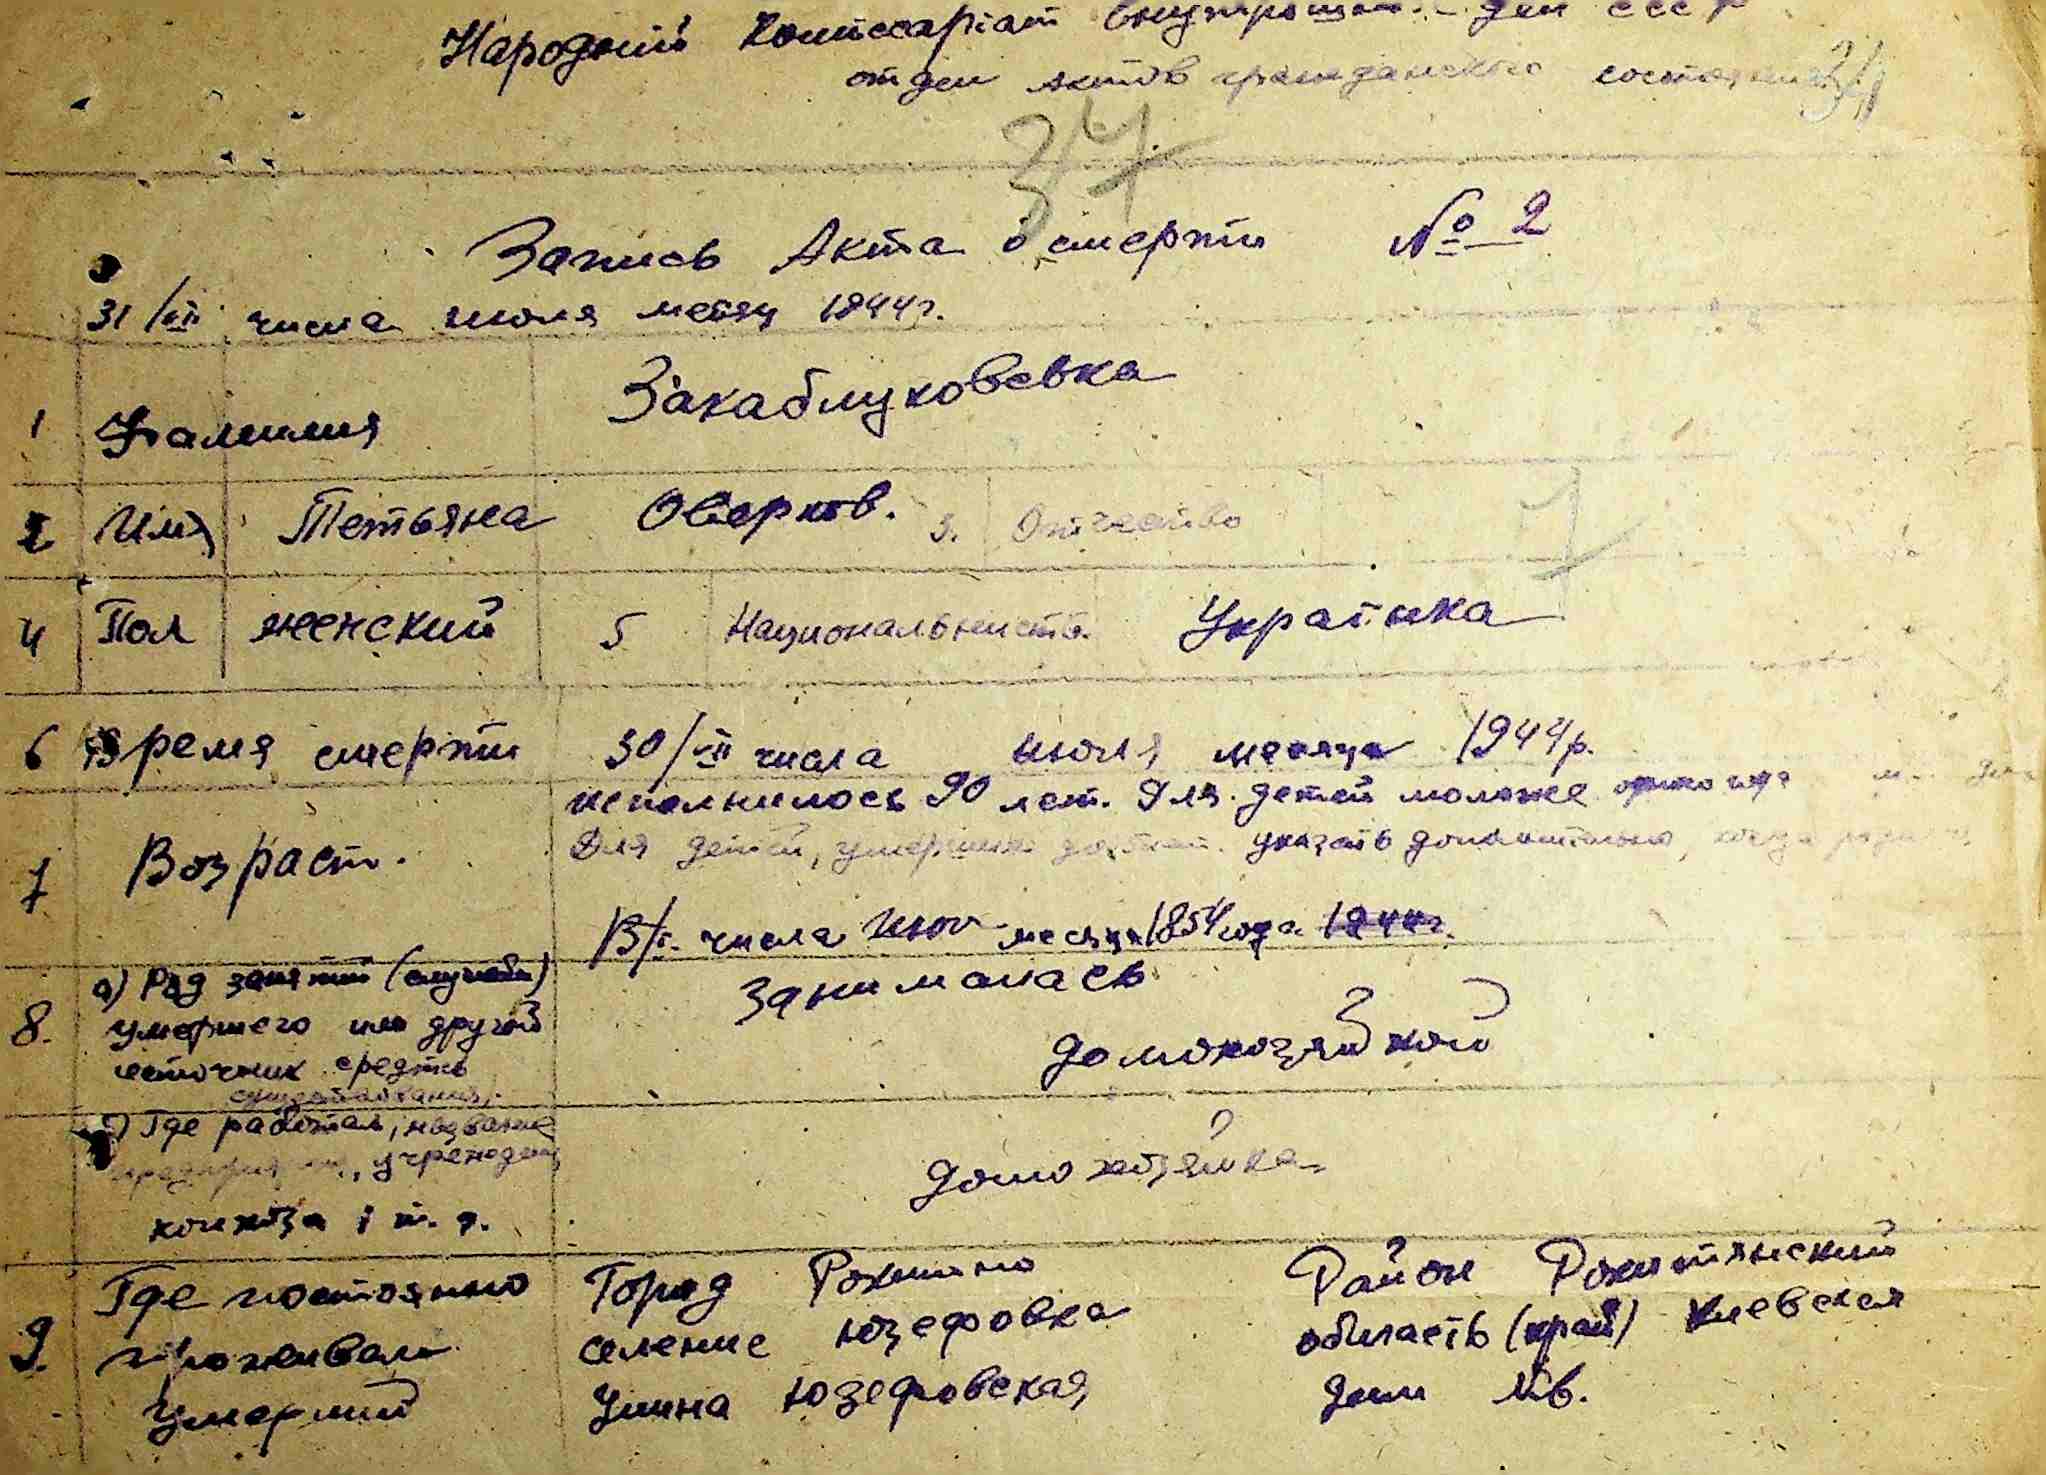 Народний Комиссаріат Внутрєшн. дел СССР
отдел Актов гражданского состояния 34
34
Запись Акта о смерти № 2
31/VII числа июля месяц 1944г.
1 Фамилия Закаблуковевка
2 Имя Тетьяна Оверков. 3. Отчество
4 Пол женский 5 Национальность Украінка
6 Время смерти 30/VII числа июля месяца 1944р.
7 Возраст. исполнилось 90 лет. Для детей моложе одного года
Для детей, умерших указать дополнительно, когда
В/ числа июл месяца 1854 года 1944г.
8. а) Род занятий (служба)
умершего или другой
источник средств
существования.
Занималась
домохозяйкой
б) Где работал, название
предприятия, учрежден
колхоза і т. д.
домохозяйка
9. Где постоянно
проживал
умерший
Город Рокитно Район Рокитянский
селение Юзефовка область (край) Киевская
Улица Юзефовская дом кв.